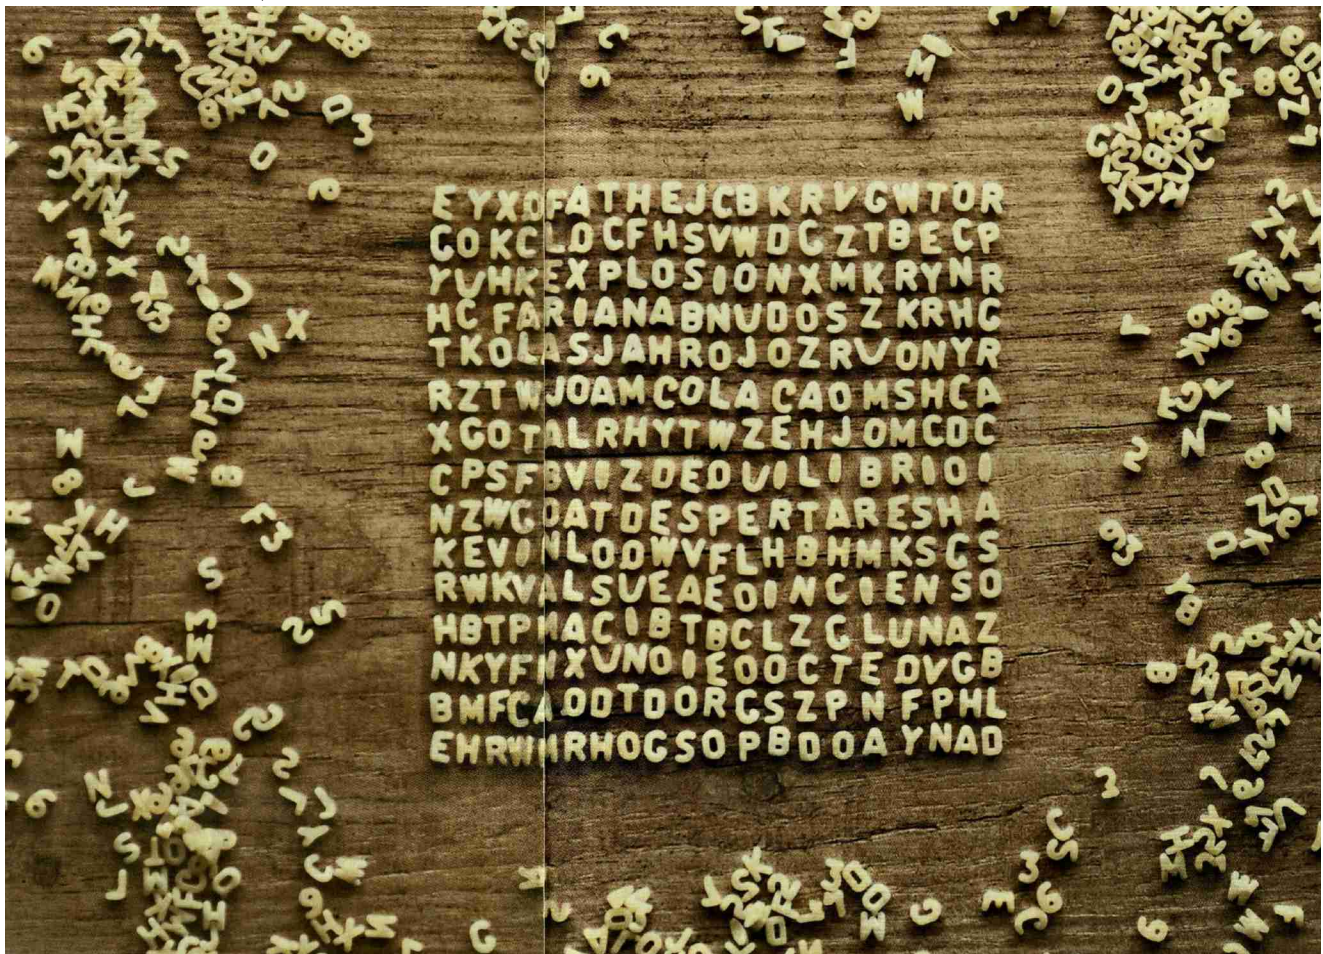 EYXOFATHEJCBKRVGWTOR
GOKCLOCFHSVWDGZTBECP
YUHKEXPLOSIONXMKRYNR
HCFARIANABNUDOSZKRHG
TKOLASJAHROJOZRUONYR
RZTWJOAMCOLACAOMSHCA
XGOTALRHYTWZEHJOMCDC
CPSFBVIZDEQUILIBRIOI
NZWGOATDESPERTARESHA
KEVINLODWVFLHBHMKSGS
RWKVALSUEAEOINCIENSO
HBTPMACIBTBCLZGLUNAZ
NKYFNXUNOIEOOCTEDVGB
BMFCAODTDORGSZPNFPHL
EHRWMRHOGSOPBDOAYNAD